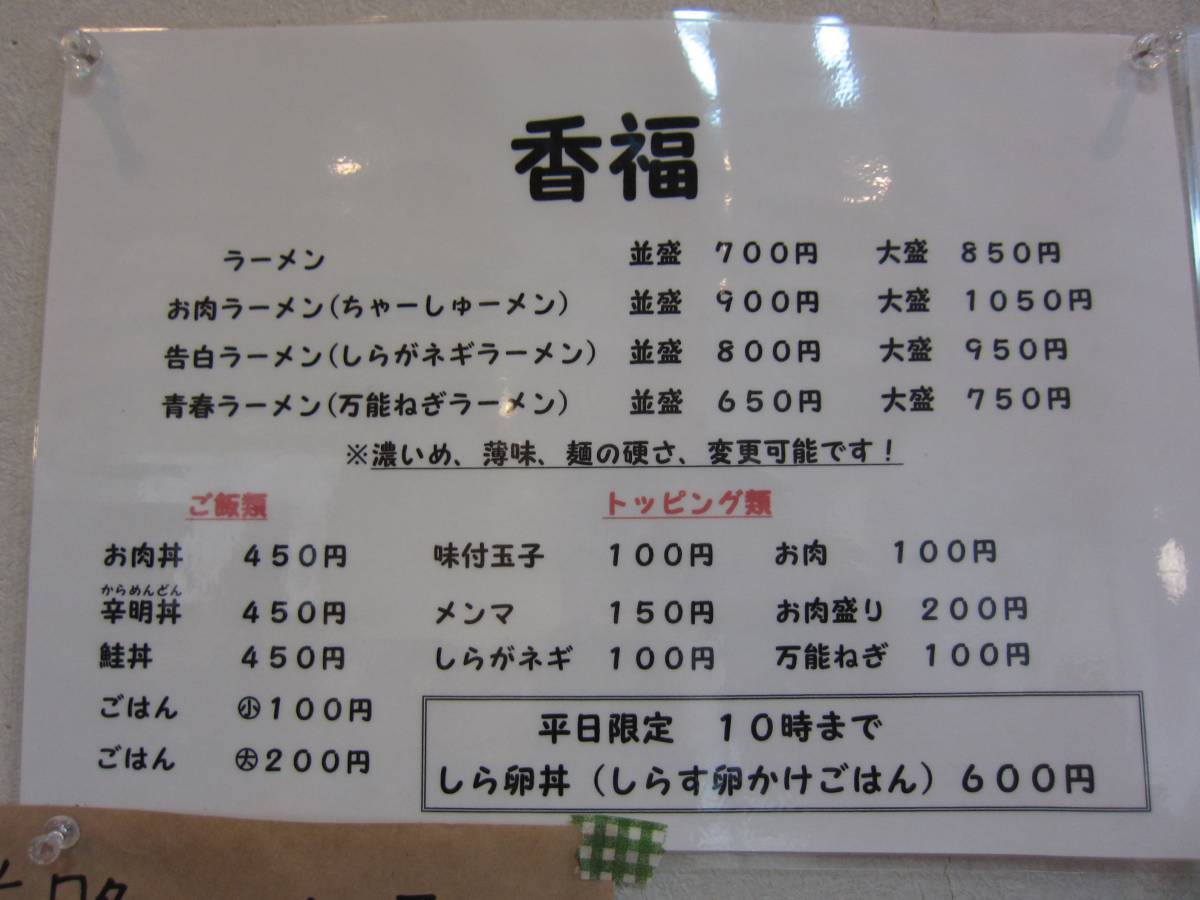 香福
ラーメン 並盛 700円 大盛 850円
お肉ラーメン(ちゃーしゅーメン) 並盛 900円 大盛 1050円
告白ラーメン(しらがネギラーメン) 並盛 800円 大盛 950円
青春ラーメン(万能ねぎラーメン) 並盛 650円 大盛 750円
※濃いめ、薄味、麺の硬さ、変更可能です！
ご飯類 トッピング類
お肉丼 450円 味付玉子 100円 お肉 100円
からめんどん
辛明丼 450円 メンマ 150円 お肉盛り 200円
鮭丼 450円 しらがネギ 100円 万能ねぎ 100円
ごはん ㊙小100円
ごはん ㊛大200円
平日限定 10時まで
しら卵丼（しらす卵かけごはん）600円